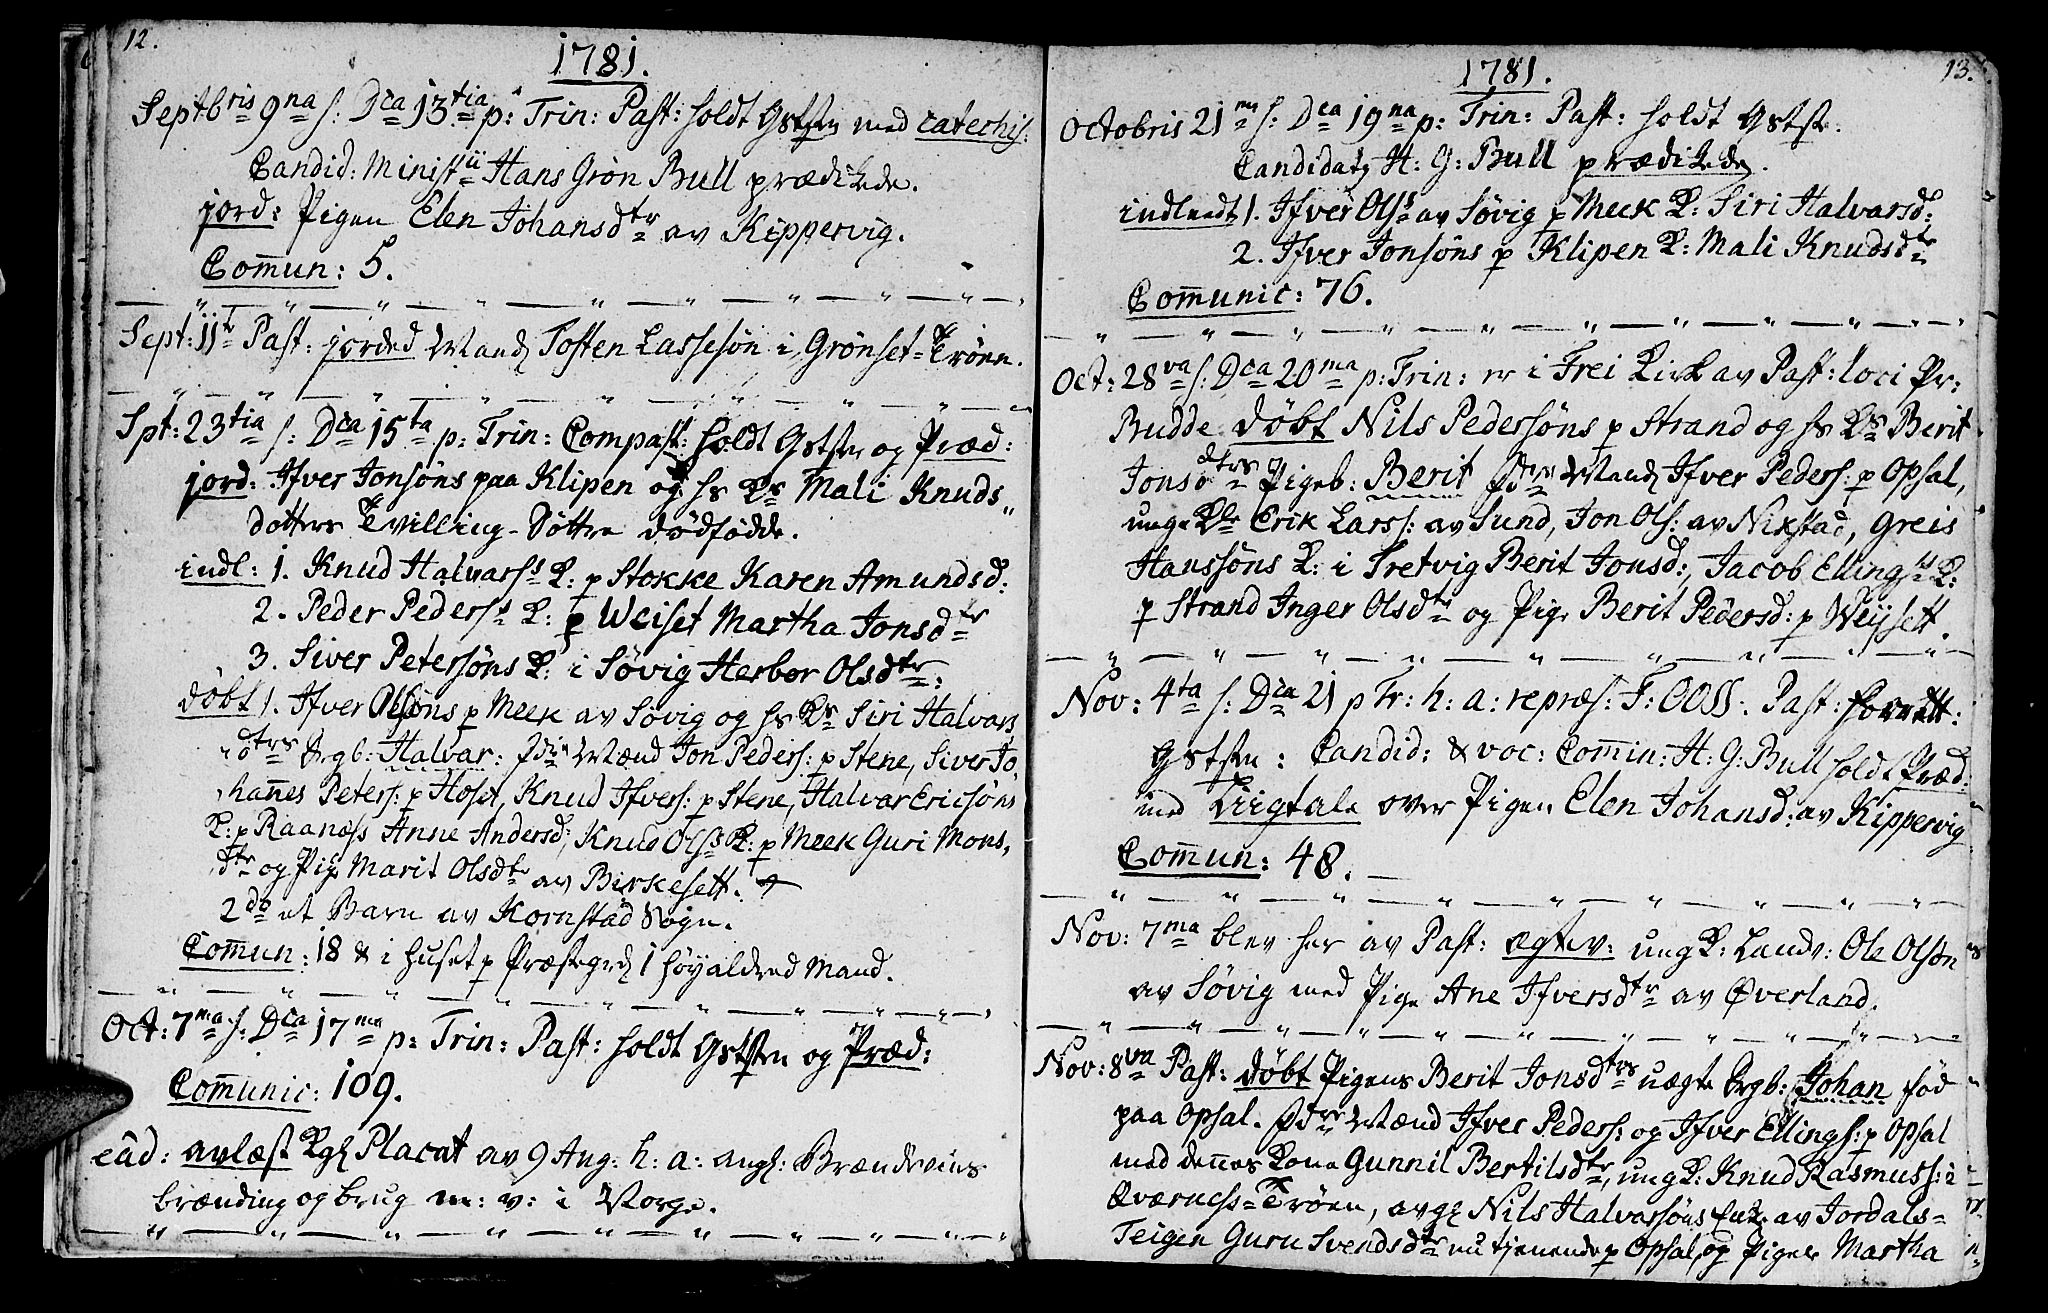 12.
1781.
Septbris 9na s: Dca 13tia p: Trin: Past: holdt Gststen med catechis:
Candid: Ministii Hans Grøn Bull prædikede.
jord: Pigen Elen Johansdtr av Kippervig.
Com̄un: 5.
Sept: 11te Past: jorded Mand Tosten Lassesøn i Grønset-Trøen.
Spt: 23tia s: Dca 15ta p: Trin: Compast: holdt Gststen og Præd:
jord: Ifver Jonsøns paa Klipen og hs Ks Mali Knuds
dotters Tvilling-Døttre dødfødde.
indl: 1. Knud Halvarss K: p Stokke Karen Amundsd:
2. Peder Pederss K: p Weiset Martha Jonsdtr
3. Siver Petersøns K: i Søvig Herbor Olsdtr:
døbt 1. Ifver Olsøns p Meek av Søvig og hs Ks Siri Halvars
dtrs Drgb: Halvar: Fdre Mænd Jon Peders: p Stene, Siver Jo,
han̄es Peters: p Hoset, Knud Ifvers: p Stene, Halvar Ericsøns
K: p Raanæss Anne Andersd:, Knud Olss K: p Meek Guri Mons,
dtr og Pig Marit Olsdtr av Birkesett.
2do et Barn av Kornstad Sogn.
Com̄un: 18 & i huset p Præstegrd 1 høyaldred Mand.
Oct: 7ma s: Dca 17ma p: Trin: Past: holdt Gststen og Præd:
Com̄unic: 109.
ead: avlæst Kgl Placat av 9 Aug: h: a: angl: Brændeviins
brænding og brug m: v: i Norge.
13.
1781.
Octobris 21ma s: Dca 19na p: Trin: Past: holdt Gstste:
Candidat H: G: Bull prædikede.
indleedt 1. Ifver Olss av Søvig p Meek K: Siri Halvarsd:
2. Ifver Jonsøns p Klipen K: Mali Knudsdtr
Com̄unic: 76.
Oct: 28va s: Dca 20ma p: Trin: er i Frei Kirk av Past: loci Pr:
Budde døbt Nils Pedersøns p Strand og hs Ks Berit
Jonsdtrs Pigeb: Berit Fdre Mand Ifver Peders: p Opsal,
unge Kle Erik Larss: av Sund, Jon Ols: av Nixstad, Greis
Hanssøns K: i Tretvig Berit Jonsd:, Jacob Ellingss K:
p Strand Inger Olsdtr og Pige Berit Pedersd: p Weysett.
Nov: 4ta s: Dca 21 p Tr: h: a: repræs: F: OOSS. Past: forrett:
Gststen: Candid: & voc: Com̄in: H: G: Bull holdt Præd:
med Liigtale over Pigen Elen Johansd: av Kippervig
Com̄un: 48.
Nov: 7ma blev her av Past: ægtev: ung K: Landv: Ole Olsøn
av Søvig med Pige Ane Ifversdtr av Øverland.
Nov: 8va Past: døbt Pigens Berit Jonsdtrs uægte Drgb: Johan fød
paa Opsal. Fdre Mænd Ifver Peders: og Ifver Ellings: p Opsal
med den̄es Kone Gunnil Bertilsdtr, ung K: Knud Rasmuss: i
Qværness-Trøen, avg Nils Halvarsøns Enke av Jordals-
Teigen Guru Svendsdtr nu tjenende p Opsal, og Pigen Martha